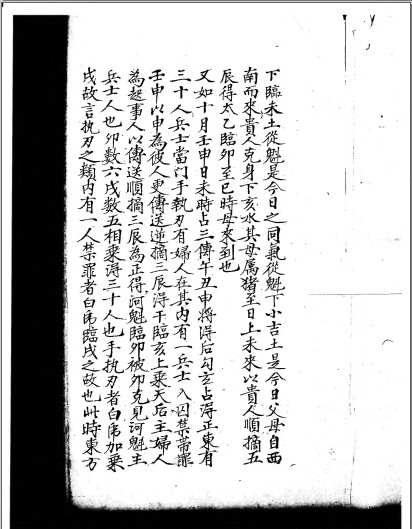 下臨未土從魁是今日之同氣從魁下小吉土是今日父母自西
南而來貴人克身下亥水其母属猪至日上未來以貴人順摘五
辰得太乙臨卯至巳時母來到也
又如十月壬申日未時占三傳午丑申将得后勾玄占得正東有
三十人兵士當门手執刃有婦人在其内有一兵士入囚禁帶罪
壬申以申為彼人更傳送逆摘三辰得干臨亥上乗天后主婦人
為起事人以傳送順摘三辰為正得河魁臨卯被卯克見河魁主
兵士人也卯數六戌數五相乗得三十人也手執刃者白虎加乗
戌故言执刃之類内有一人禁罪者白虎臨戌之故也此時東方